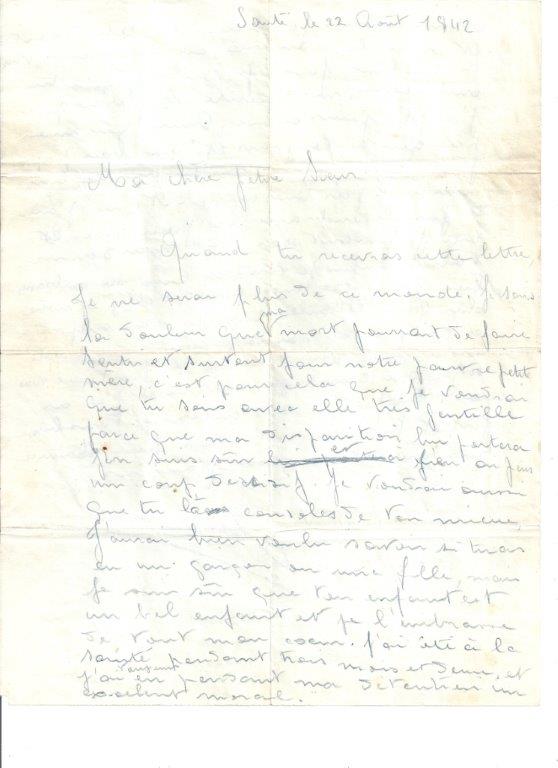 Santé le 22 Août 1942
Ma chère petite Soeur
Quand tu recevras cette lettre,
Je ne serai plus de ce monde. Je sais
la douleur que ma mort pourrait te faire
sentir et surtout pour notre pauvre petit
mère, c'est pour cela que je voudrai
que tu sois avec elle très gentille
parce que ma disparition lui portera
j'en suis sûr et
un coup décisif. Je voudrai aussi
que tu la consoles de ton mieux,
J'aurai bien voulu savoir si tu as
eu un garçon ou une fille, mais
Je suis sûr que ton enfant est
un bel enfant et je l'embrasse
de tout mon coeur. J'ai été à la
santé pendant trois mois et demi, et
j'ai eu toujours pendant ma détention un
excellent moral.